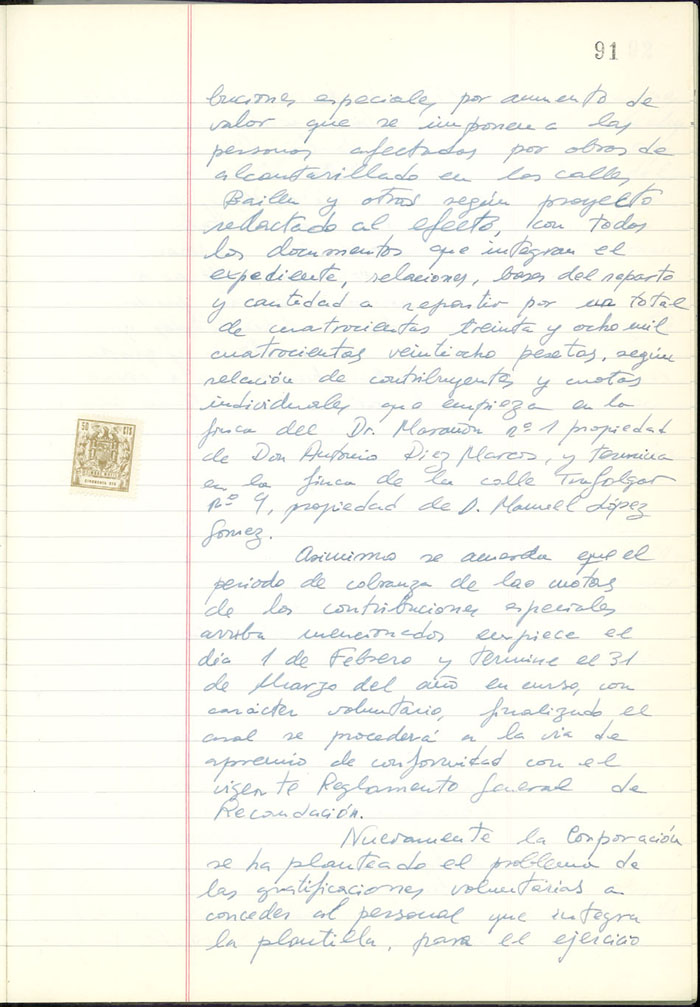 91
buciones especiales por aumento de
valor que se imponen a las
personas afectadas por obras de
alcantarillado en las calles
Bailen y otras según proyecto
redactado al efecto, con todos
los documentos que integran el
expediente, relaciones, bases del reparto
y cantidad a repartir por un total
de cuatrocientas treinta y ocho mil
cuatrocientas veintiocho pesetas, según
relación de contribuyentes y cuotas
individuales que empieza en la
50 CTS
finca del Dr. Marañón nº 1 propiedad
de Don Antonio Diez Marcos, y termina
en la finca de la calle Trafalgar
nº 9, propiedad de D. Manuel López
Gomez.
Asimismo se acuerda que el
periodo de cobranza de las cuotas
de las contribuciones especiales
arriba mencionadas empiece el
día 1 de Febrero y termine el 31
de Marzo del año en curso, con
carácter voluntario, finalizado el
cual se procederá a la vía de
apremio de conformidad con el
vigente Reglamento General de
Recaudación.
Nuevamente la Corporación
se ha planteado el problema de
las gratificaciones voluntarias a
conceder al personal que integra
la plantilla, para el ejercicio